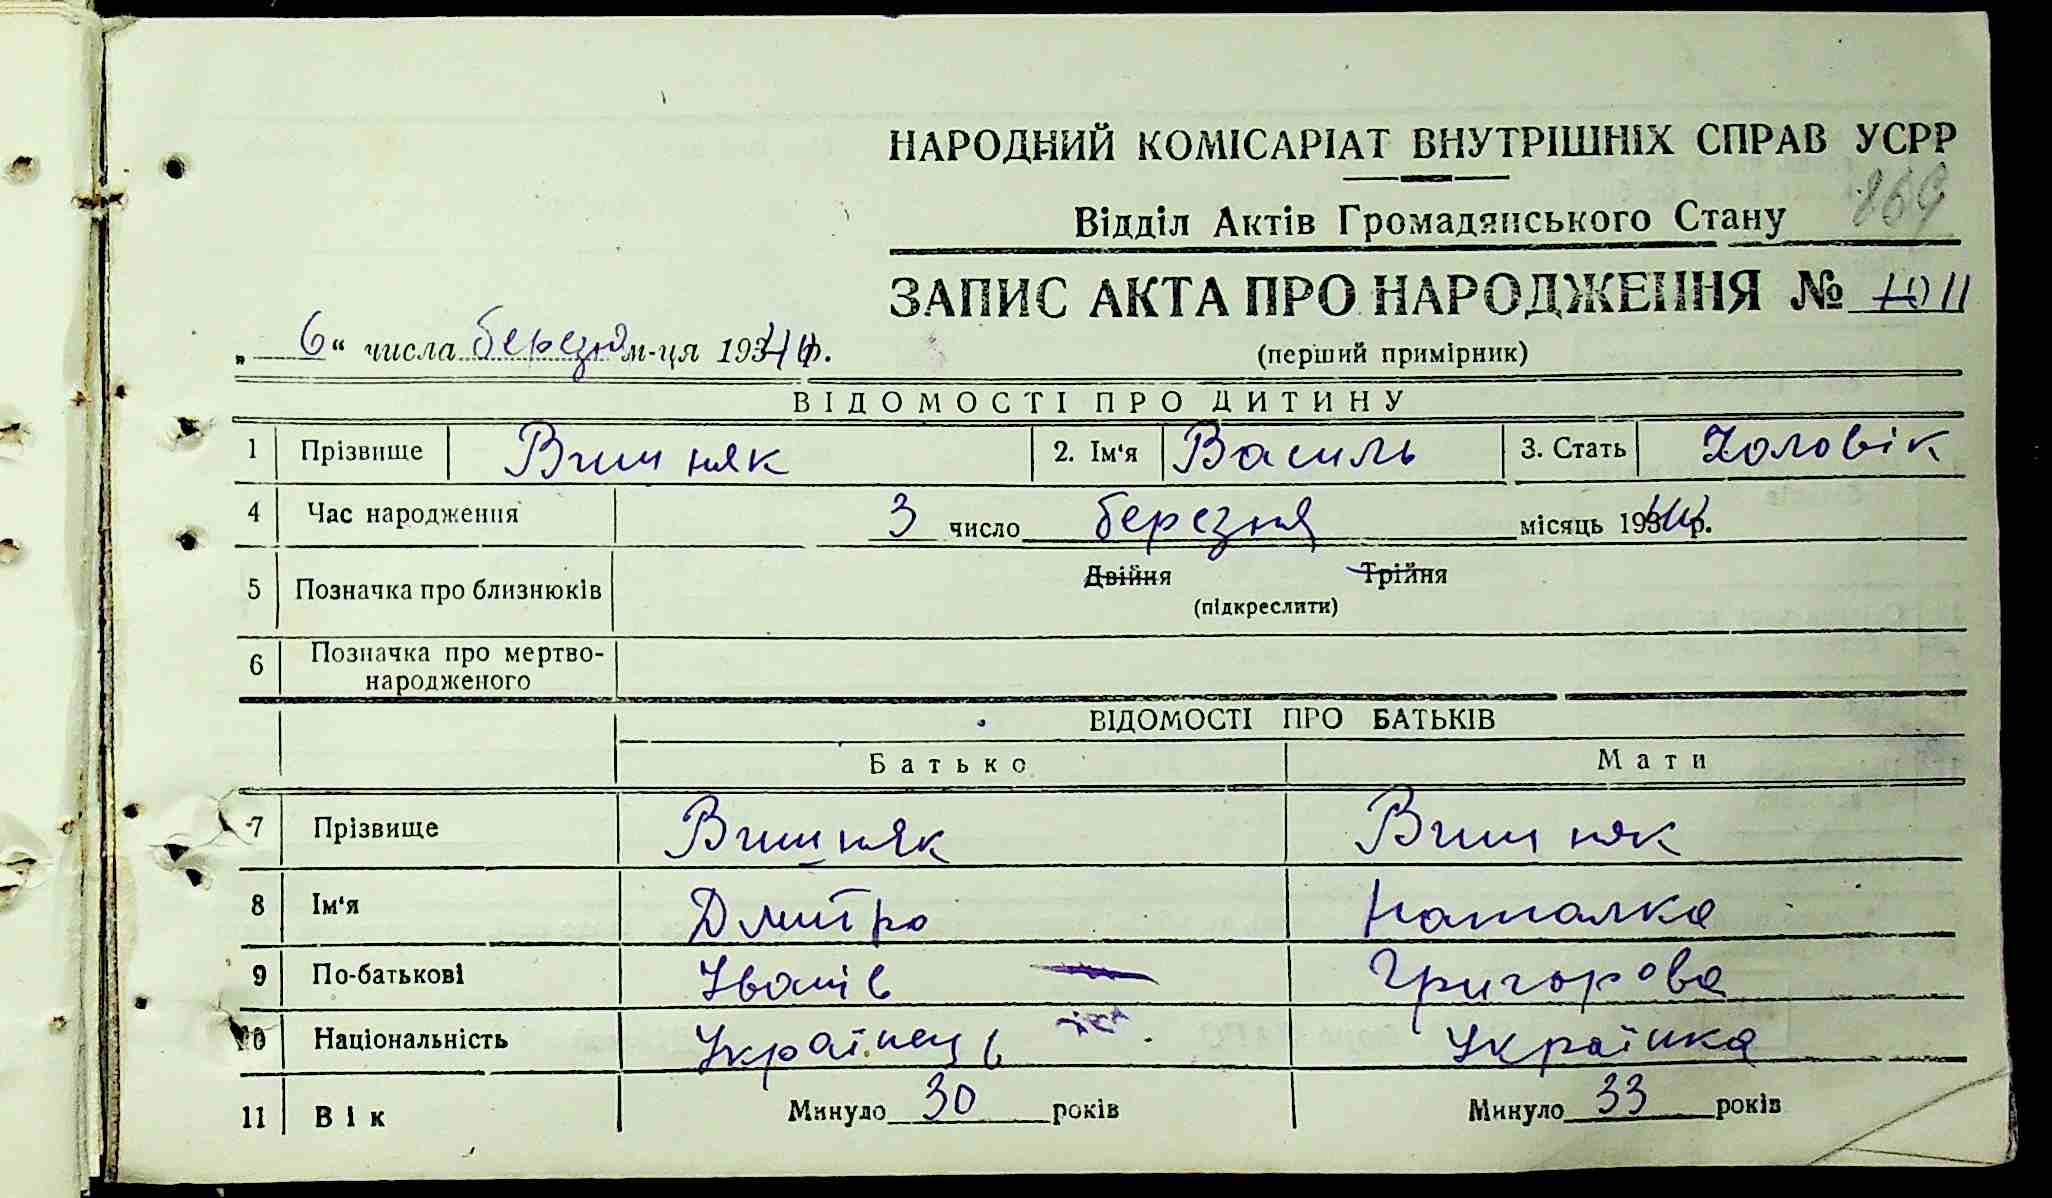 НАРОДНИЙ КОМІСАРІАТ ВНУТРІШНІХ СПРАВ УСРР
869
Відділ Актів Громадянського Стану
ЗАПИС АКТА ПРО НАРОДЖЕННЯ № 11
„ 6 “ числа березня м-ця 1944 р.
(перший примірник)
ВІДОМОСТІ ПРО ДИТИНУ
1 Прізвище Вишняк 2. Ім'я Василь 3. Стать Чоловік
4 Час народження 3 число березня місяць 1944 р.
5 Позначка про близнюків Двійня Трійня
(підкреслити)
6 Позначка про мертво-
народженого
ВІДОМОСТІ ПРО БАТЬКІВ
Батько Мати
7 Прізвище Вишняк Вишняк
8 Ім'я Дмитро Наталка
9 По-батькові Іванів Григорова
10 Національність Українець Українка
11 Вік Минуло 30 років Минуло 33 років